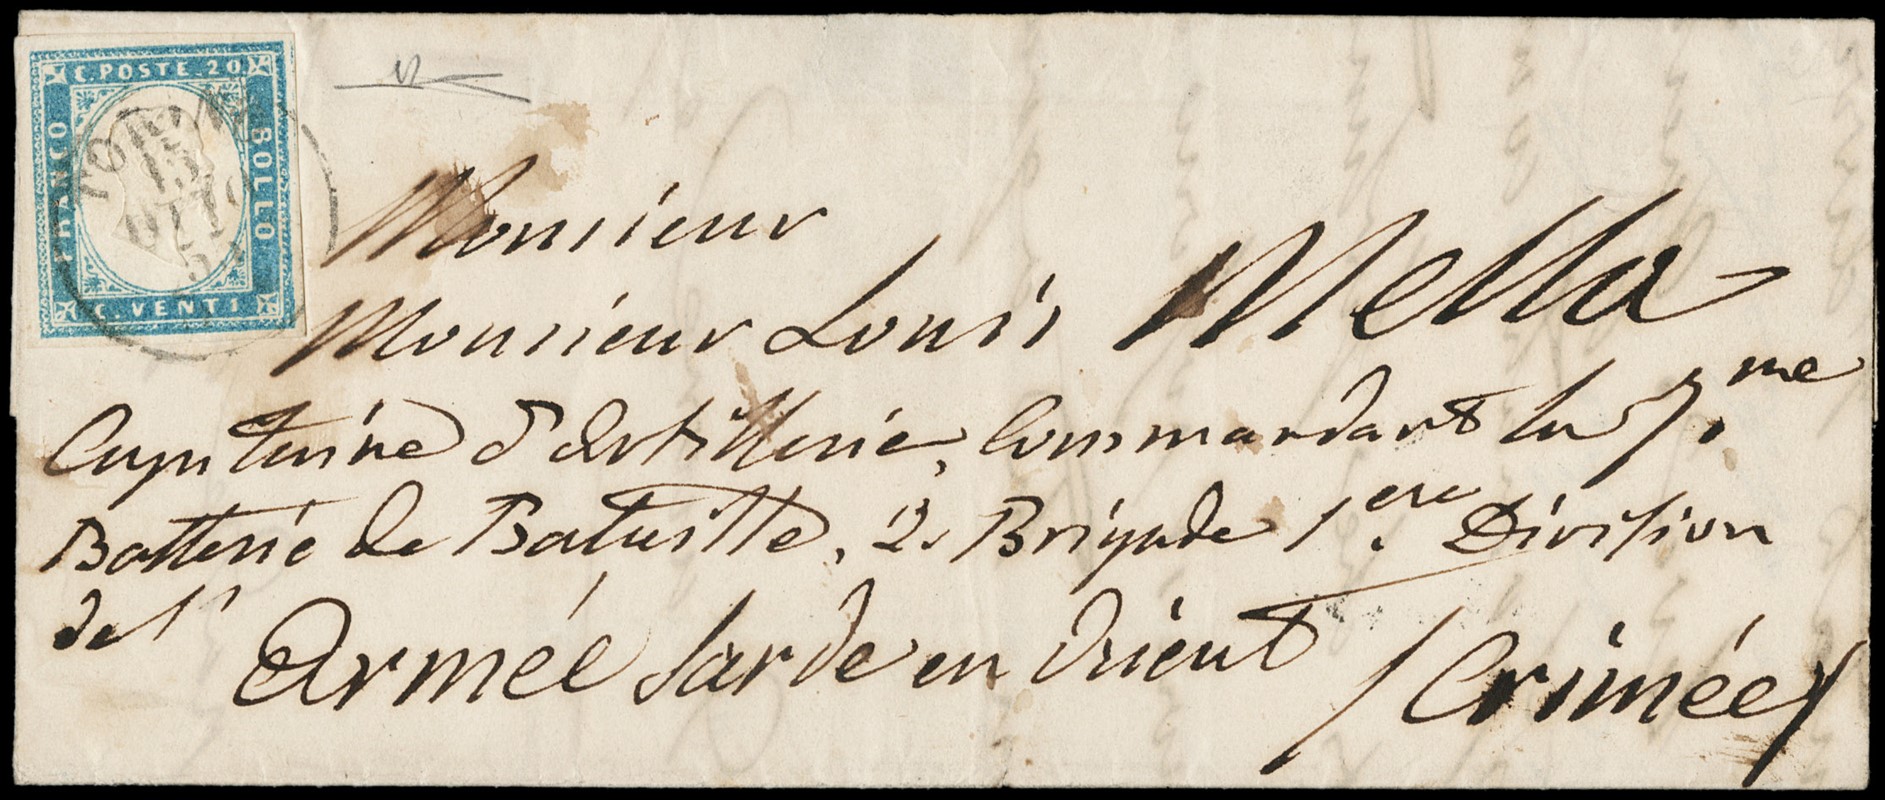 C. POSTE. 20
FRANCO
BOLLO
C. VENTI
TORINO
15
OTTO
55
Monsieur
Monsieur Louis Mella
Capitaine d'Artillerie, Commandant la 7.me
Batterie de Bataille, 2. Brigade 1.ere Division
de l'
Armée Sarde en Orient /Crimée/